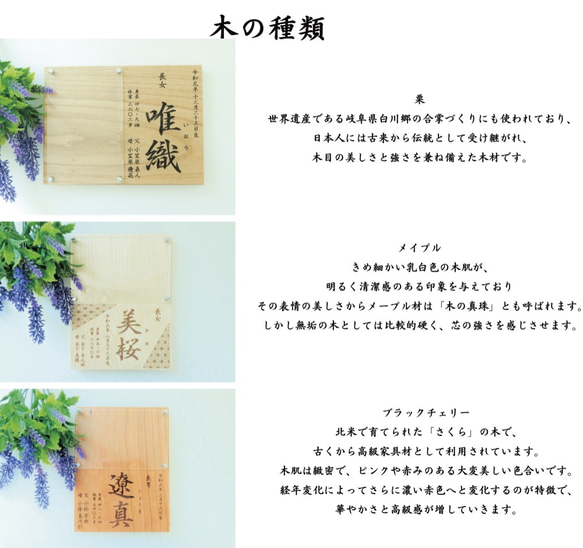 木の種類
栗
世界遺産である岐阜県白川郷の合掌づくりにも使われており、
日本人には古来から伝統として受け継がれ、
木目の美しさと強さを兼ね備えた木材です。
長女
唯織
いおり
メイプル
きめ細かい乳白色の木肌が、
明るく清潔感のある印象を与えており
その表情の美しさからメープル材は「木の真珠」とも呼ばれます。
しかし無垢の木としては比較的硬く、芯の強さを感じさせます。
長女
美桜
ブラックチェリー
北米で育てられた「さくら」の木で、
古くから高級家具材として利用されています。
木肌は緻密で、ピンクや赤みのある大変美しい色合いです。
経年変化によってさらに濃い赤色へと変化するのが特徴で、
華やかさと高級感が増していきます。
長男
遼真